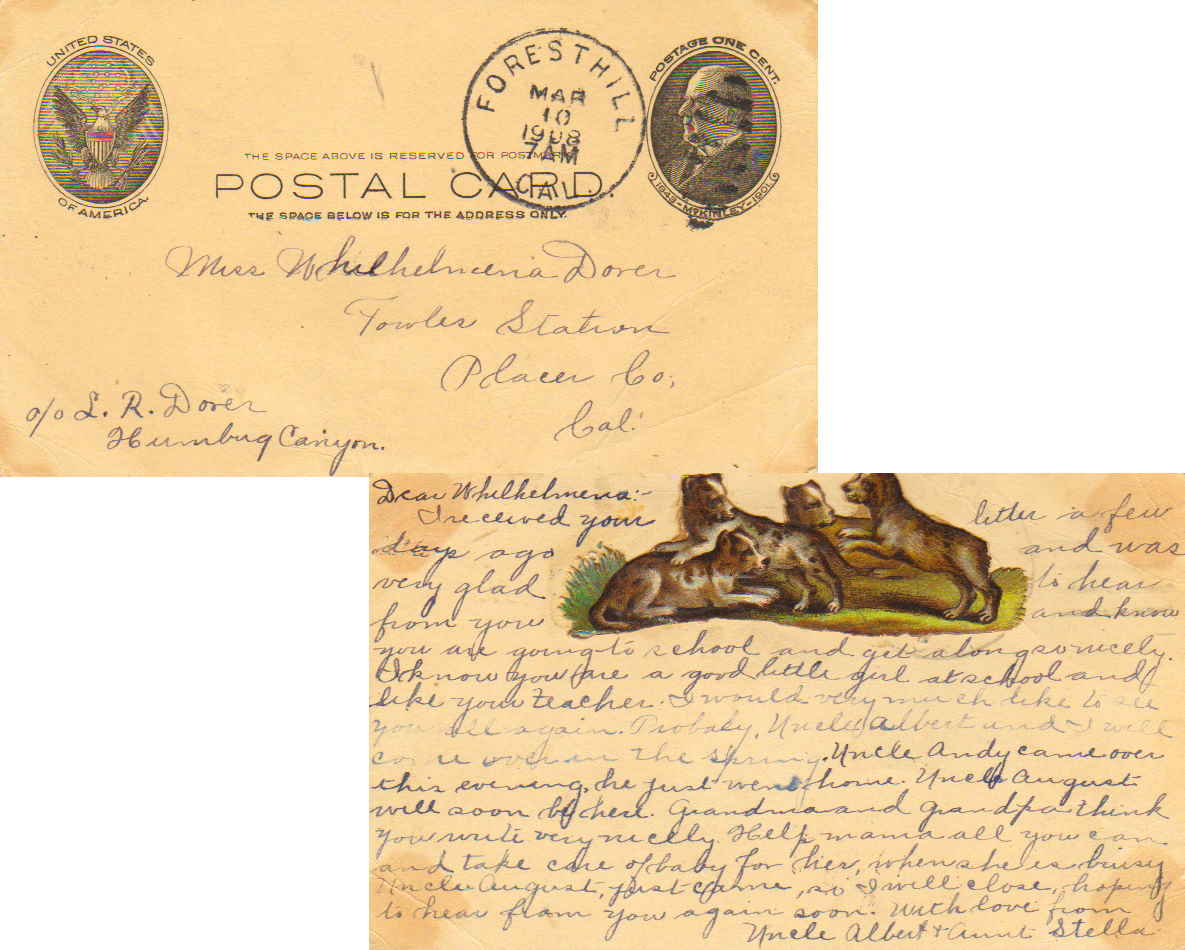 UNITED STATES
OF AMERICA.
FORESTHILL
MAR
10
1908
7AM
CAL.
POSTAGE ONE CENT.
1843-McKINLEY-1901
THE SPACE ABOVE IS RESERVED FOR POSTMARK
POSTAL CARD.
THE SPACE BELOW IS FOR THE ADDRESS ONLY.
Miss Whilhelmenia Dover
Towles Station
Placer Co,
Cal.
c/o L. R. Dover
Humbug Canyon.
Dear Whilhelmena:-
I received your letter a few
days ago and was
very glad to hear
from you and know
you are going to school and get along so nicely.
I know you are a good little girl at school and
like your teacher. I would very much like to see
you all again. Probaly, Uncle Albert and I will
come over in the spring. Uncle Andy came over
this evening, he just went home. Uncle August
will soon be here. Grandma and grandpa think
you write very nicely. Help mama all you can
and take care of baby for her, when she is buisy
Uncle August, just came, so I will close, hoping
to hear from you again soon. With love from
Uncle Albert & Aunt Stella